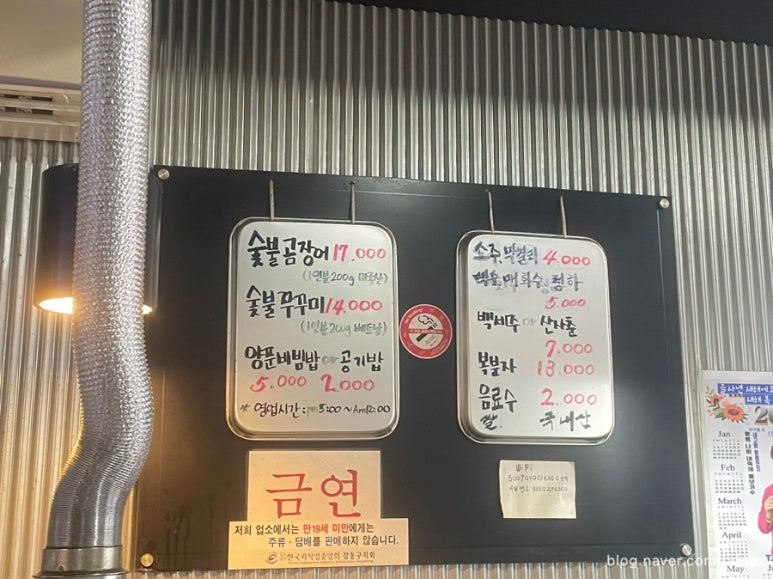 숯불곰장어 17.000
(1인분 200g 미국산)
숯불쭈꾸미 14.000
(1인분 200g 베트남)
양푼비빔밥 or 공기밥
5.000 2.000
* 영업시간 : pm 5:00 ~ Am 12:00
소주, 막걸리 4.000
맥주, 매화수, 청하
5.000
백세주 or 산사춘
7.000
복분자 13.000
음료수 2.000
쌀 국내산
금연
저희 업소에서는 만19세 미만에게는
주류·담배를 판매하지 않습니다.
한국외식업중앙회 강동구지회
WiFi
비밀번호
을사년 새해에
새해 복
Jan
Feb
March
April
May
blog.naver.com